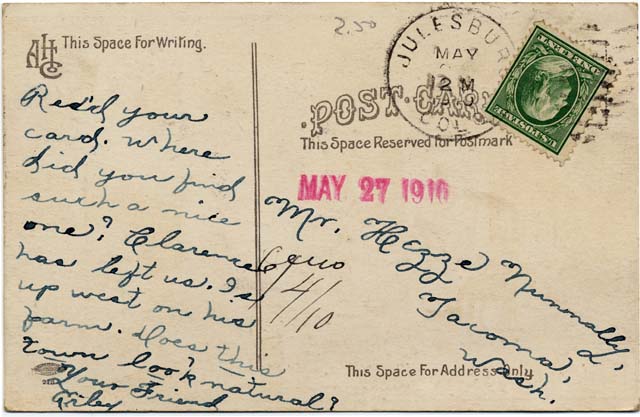 2.50
AHC
This Space For Writing.
JULESBUR
MAY
12 M
COL
POST CARD
This Space Reserved for Postmark
MAY 27 1910
Rec'd your
card. Where
did you find
such a nice
one? Clarence
has left us. Is
up west on his
farm. Does this
town look natural?
Your Friend
Riley
Mr. Hezze Nunnally,
Tacoma,
Wash.
4/10
This Space For Address Only.